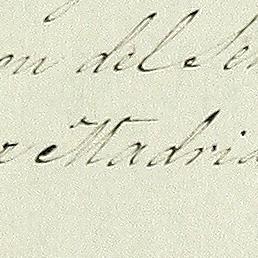 on del Se
r Madrid